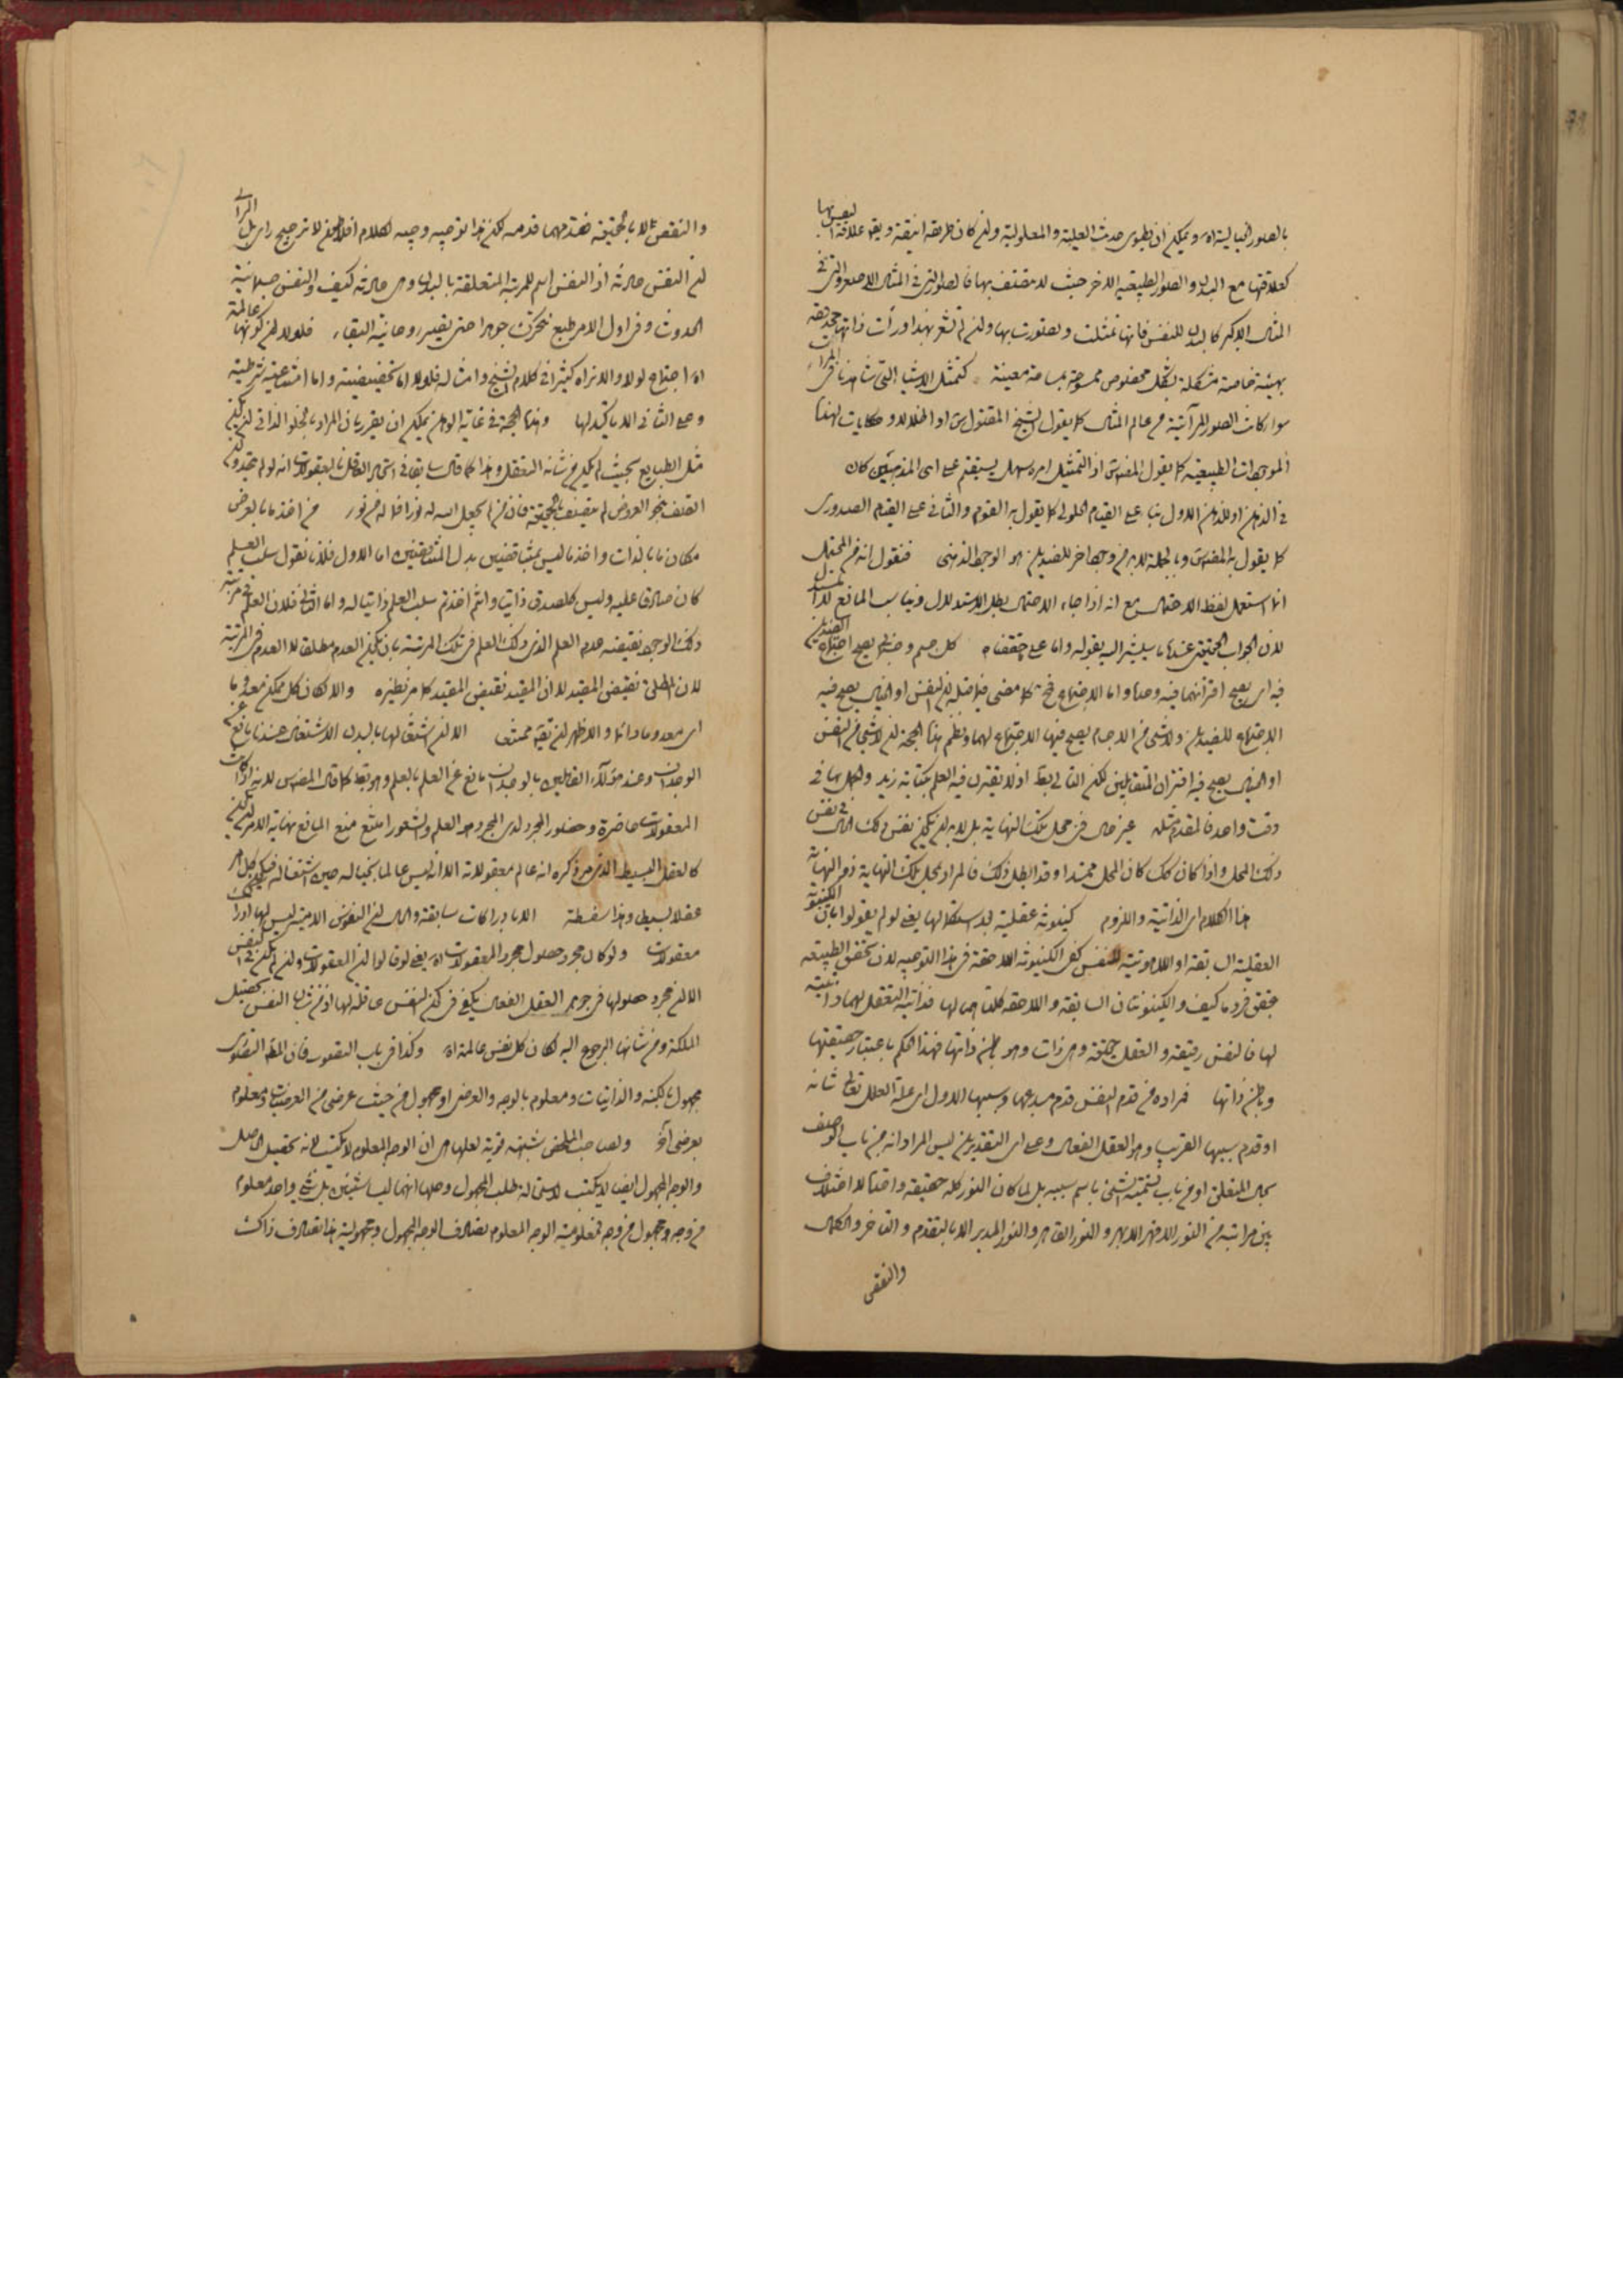 بالصور الخيالية اه ويمكن ان يطوى حديث العلية والمعلولية وان كان طريقه انيقة ويقال علاقة النفس بها
كعلاقتها مع البدن والصور الطبيعية الاخر حيث لا تتصف بها فالصور التي في المثال الاصغر والتي في
المثال الاكبر كالبدن للنفس فانها تمثلت وتصورت بها وان لم تشعر بهذا ورأت ذاتها
بهيئة خاصة متشكلة بشكل مخصوص ممسوحة بمساحة معينة كتمثل الاشياء التي شأنها في المرايا
سواء كانت الصور المرآتية من عالم المثال كما يقول الشيخ المقتول س او اظلالا وحكايات لهذه
الموجودات الطبيعية كما يقول المصنف س اذ التمثل امر سهل يستقيم على اى المذهبين كان
في الذهن او للذهن الاول بناء على القيام الحلولى كما يقول به القوم والثانى على القيام الصدورى
كما يقول به المصنف س وبالجملة لا بد من وجود اخر للضدين هو الوجود الذهنى فنقول انه من المحتمل
انما استعمل لفظ الاحتمال مع انه اذا جاء الاحتمال بطل الاستدلال ويناسب المانع لا المستدل
لان الجواب الحقيقى عنده ما سيشير اليه بقوله واما على ما حققناه كل جسم وجسمانى يصح اجتماع الضدين
فيه اى يصح اقترانهما فيه وحده واما الاجتماع فى كما مضى فيلزم قبله ان النفس او الخيال يصح فيه
الاجتماع للضدين ولا شىء من الاجسام يصح فيها الاجتماع لهما ونظم هذه الحجة ان لا شىء من النفس
او الخيال يصح فيه اقتران المتقابلين لكن التالى بط اذ لا يقترن فيه العلم بكتابة زيد والجهل بها فى
وقت واحد فالمقدم مثله غير حال فى محل تلك النهاية بل لا بد ان يكون نفس ذلك الحال فى نفس
ذلك المحل واذا كان كك كان المحل ممتدا وقد ابطل ذلك فالمراد بمحل تلك النهاية ذو النهاية
هذا الكلام اى الذاتية واللزوم كينونة عقلية بعد استكمالها يعنى لو لم يقولوا بان الكينونة
العقلية السابقة او اللاهوتية للنفس كفى الكينونة اللاحقة فى هذا التوجيه لان تحقق الطبيعة
بتحقق فرد ما كيف والكينونتان السابقة واللاحقة كلتاهما لها فذاتية التعقل لهما ذاتية
لها فالنفس رقيقة والعقل حقيقة وهى ذات وهو باطن ذاتها فهذا الحكم باعتبار حقيقتها
وباطن ذاتها فمراده من قدم النفس قدم مبدعها وسببها الاول اى علة العلل تعالى شانه
او قدم سببها القريب وهو العقل الفعال وعلى اى التقديرين ليس المراد انه من باب الوصف
بحال المتعلق او من باب تسمية الشىء باسم سببه بل لما كان النور كله حقيقة واحدة لا اختلاف
بين مراتبه من النور الاقهر الابهر والنور القاهر والنور المدبر الا بالتقدم والتاخر والكمال
والنقص
والنقص لا بالحقيقة فقدمهما قدمه لكن هذا توجيه وجيه لكلام افلاطون لا ترجيح راى
ان النفس حادثة اذ النفس اسم للمرتبة المتعلقة بالبدن وهى حادثة كيف والنفس جسمانية
الحدوث وفى اول الامر طبع يتحرك جوهرا حتى يصير روحانية البقاء فلولا ان كونها عالمة
اه اجتماع لولا والا نراه كثيرا فى كلام الشيخ وامثاله فلولا اما تحضيضية واما امتناعية شرطية
وعلى الثانى الا تاكيد لها وهذه الحجة فى غاية الوهن يمكن ان يقرر بان المراد بالخلو الذاتى ان يكون
مثل الطبايع بحيث لم يكن من شانه التعقل وهذا كما قال سابقا فى اتحاد العاقل بالمعقولات انه لو لم يتحد ولم
اتصف بنحو العروض لم يتصف بالحقيقة فان من لم يجعل الله له نورا فما له من نور من اخذ ما بالعرض
مكان ما بالذات واخذ ما ليس بمتناقضين بدل المتناقضين اما الاول فلانا نقول سلب العلم
كان صادقا عليه وليس كل صدق ذاتيا وانتم اخذتم سلب العلم ذاتيا له واما الثانى فلان العلم فى مرتبة
ذلك الوجود نقيضه عدم العلم الذى ذلك العلم فى تلك المرتبة بان يكون العدم مطلقا لا العدم فى المرتبة
لان المطلق نقيض المقيد لا ان المقيد نقيض المقيد كما مر نظيره والا لكان كل ممكن معدوما
اى معدوما دائما والاظهر ان بقية ممتنعا الا ان اشتغالها بالبدن الاشتغال عندنا مانع عن
الوجدان وعند هؤلاء القائلين بالوجدان مانع عن العلم بالعلم وهو بط كما قال المصنف س لانه اذا كانت
المعقولات حاضرة وحضور المجرد لدى المجرد هو العلم والشعور امتنع منع المانع نهاية الامر ان يكون
كالعقل البسيط الذى مر ذكره انه عالم معقولاته الا انه ليس عالما بخياله حين اشتغاله فيكون كل امر
عقلا بسيطا وهذا سفسطة الا بادراكات سابقة والحال ان النفوس الامية ليس لها ادراك
معقولات ولو كان مجرد حصول مجرد المعقولات اه يعنى لو قالوا ان المعقولات وان لم تكن فى النفس
الا ان مجرد حصولها فى جوهر العقل الفعال يكفى فى كون النفس عاقلة لها اذ من شان النفس تحصيل
الملكة ومن شانها الرجوع اليه لكان كل نفس عالمة اه وكذا فى باب التصور فان المطلوب التصورى
مجهول بالكنه والذاتيات ومعلوم بالوجه والعرضى او مجهول من حيث عرضى من العرضيات ومعلوم
بعرضى آخر ولصاحب الملخص شبهة قوية لعلها هى ان الوجه المعلوم لا يكتسب لانه تحصيل الحاصل
والوجه المجهول ايضا لا يكتسب لاستحالة طلب المجهول وحلها انهما ليسا شيئين بل شىء واحد معلوم
من وجه ومجهول من وجه فمعلومية الوجه المعلوم تصادف الوجه المجهول ومجهولية هذا تصادف ذاك